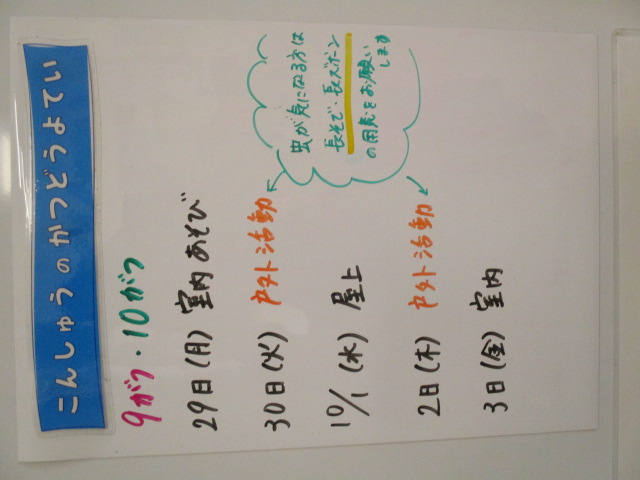 こんしゅうのかつどうよてい
9がつ・10がつ
29日(月) 室内あそび
30日(火) 戸外活動
10/1(水) 屋上
2日(木) 戸外活動
3日(金) 室内
虫が気になる方は
長そで、長ズボン
の用意をお願い
します